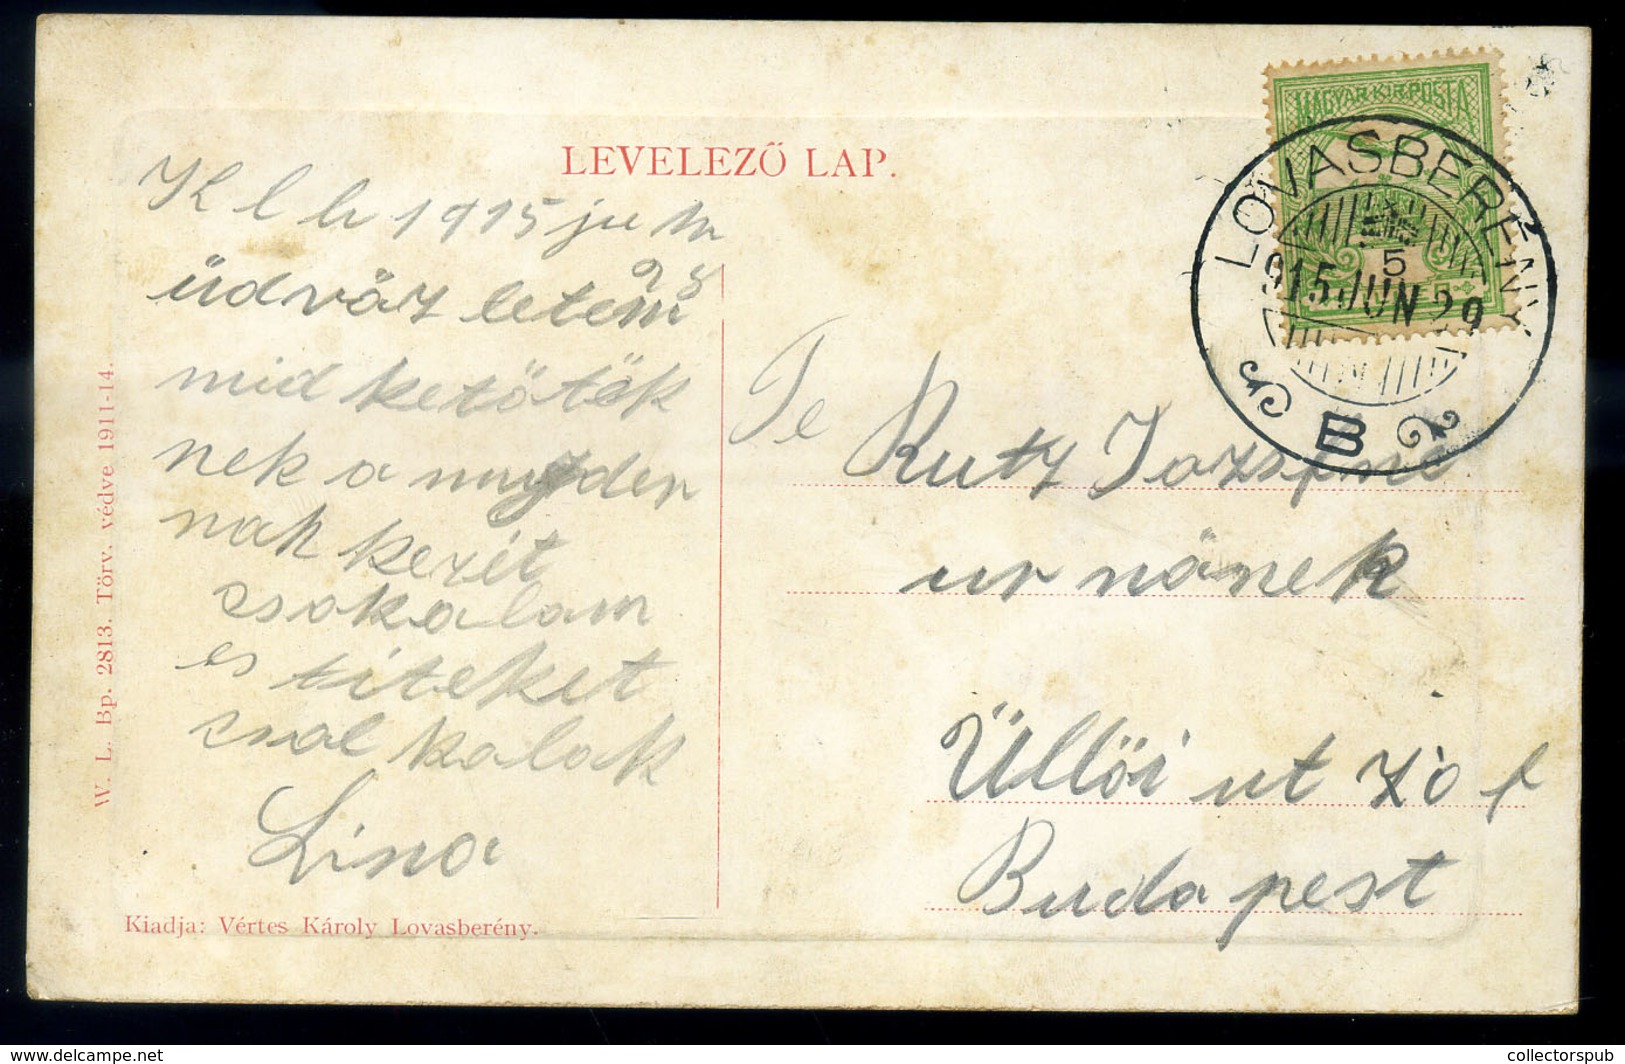 LEVELEZŐ LAP.
MAGYAR KIR. POSTA
LOVASBERÉNY
5
915 JUN 29
B
K l h 1915 jun
28
üdvöz letem
mid ketőtök
nek a
nak kezét
csokalam
es titeket
csol kalak
Lina
Te
Rutz Jozsefné
ur nőnek
Üllői ut
Budapest
W. L. Bp. 2813. Törv. védve 1911-14.
Kiadja: Vértes Károly Lovasberény.
collectorspub.com